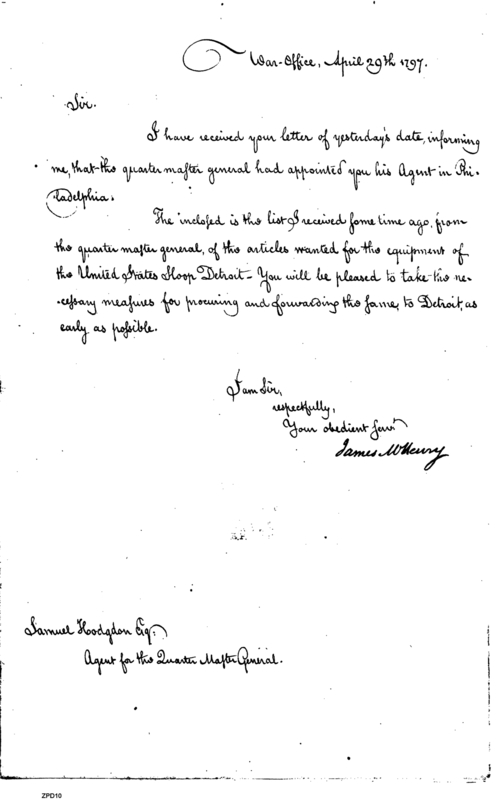 War-Office, April 29th 1797.
Sir.
I have received your letter of yesterday's date, informing
me, that the quarter master general had appointed you his Agent in Phi-
ladelphia.
The inclosed is the list I received some time ago, from
the quarter master general, of the articles wanted for the equipment of
the United States Sloop Detroit - You will be pleased to take the ne-
cessary measures for procuring and forwarding the same, to Detroit, as
early as possible.
I am Sir,
respectfully,
Your obedient Servt
James McHenry
Samuel Hodgdon Esq.
Agent for the Quarter Master General.
ZPD10